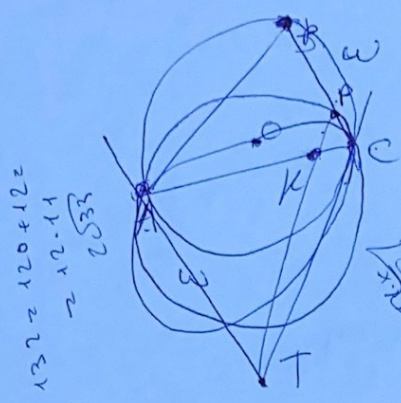 132 = 120+12 =
= 12·11
2√33
B
ω
P
O
K
C
A
ω
T